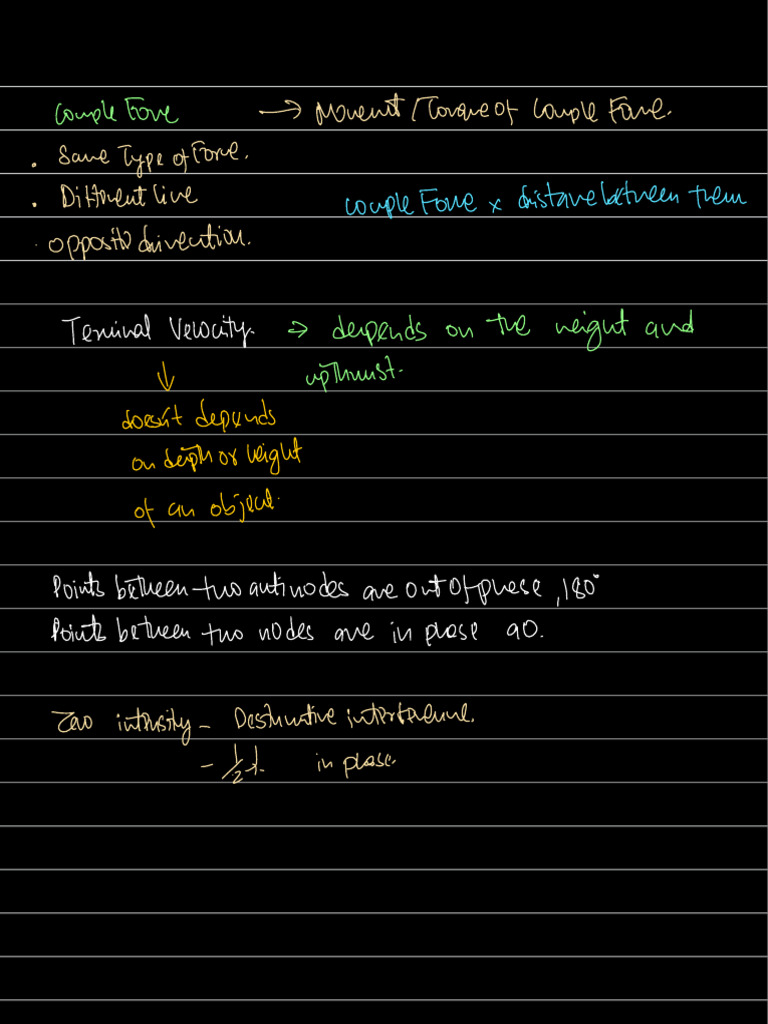 Couple Force → Moment / Torque of Couple Force.
. Same Type of Force.
. Different line
couple Force x distance between them
. opposite direction.
Terminal Velocity. → depends on the weight and
upthrust.
↓
doesn't depends
on depth or height
of an object.
Points between two antinodes are out of phase, 180°
Points between two nodes are in phase 90.
Zero intensity - Destructive interference.
- 1/2 λ. in phase.